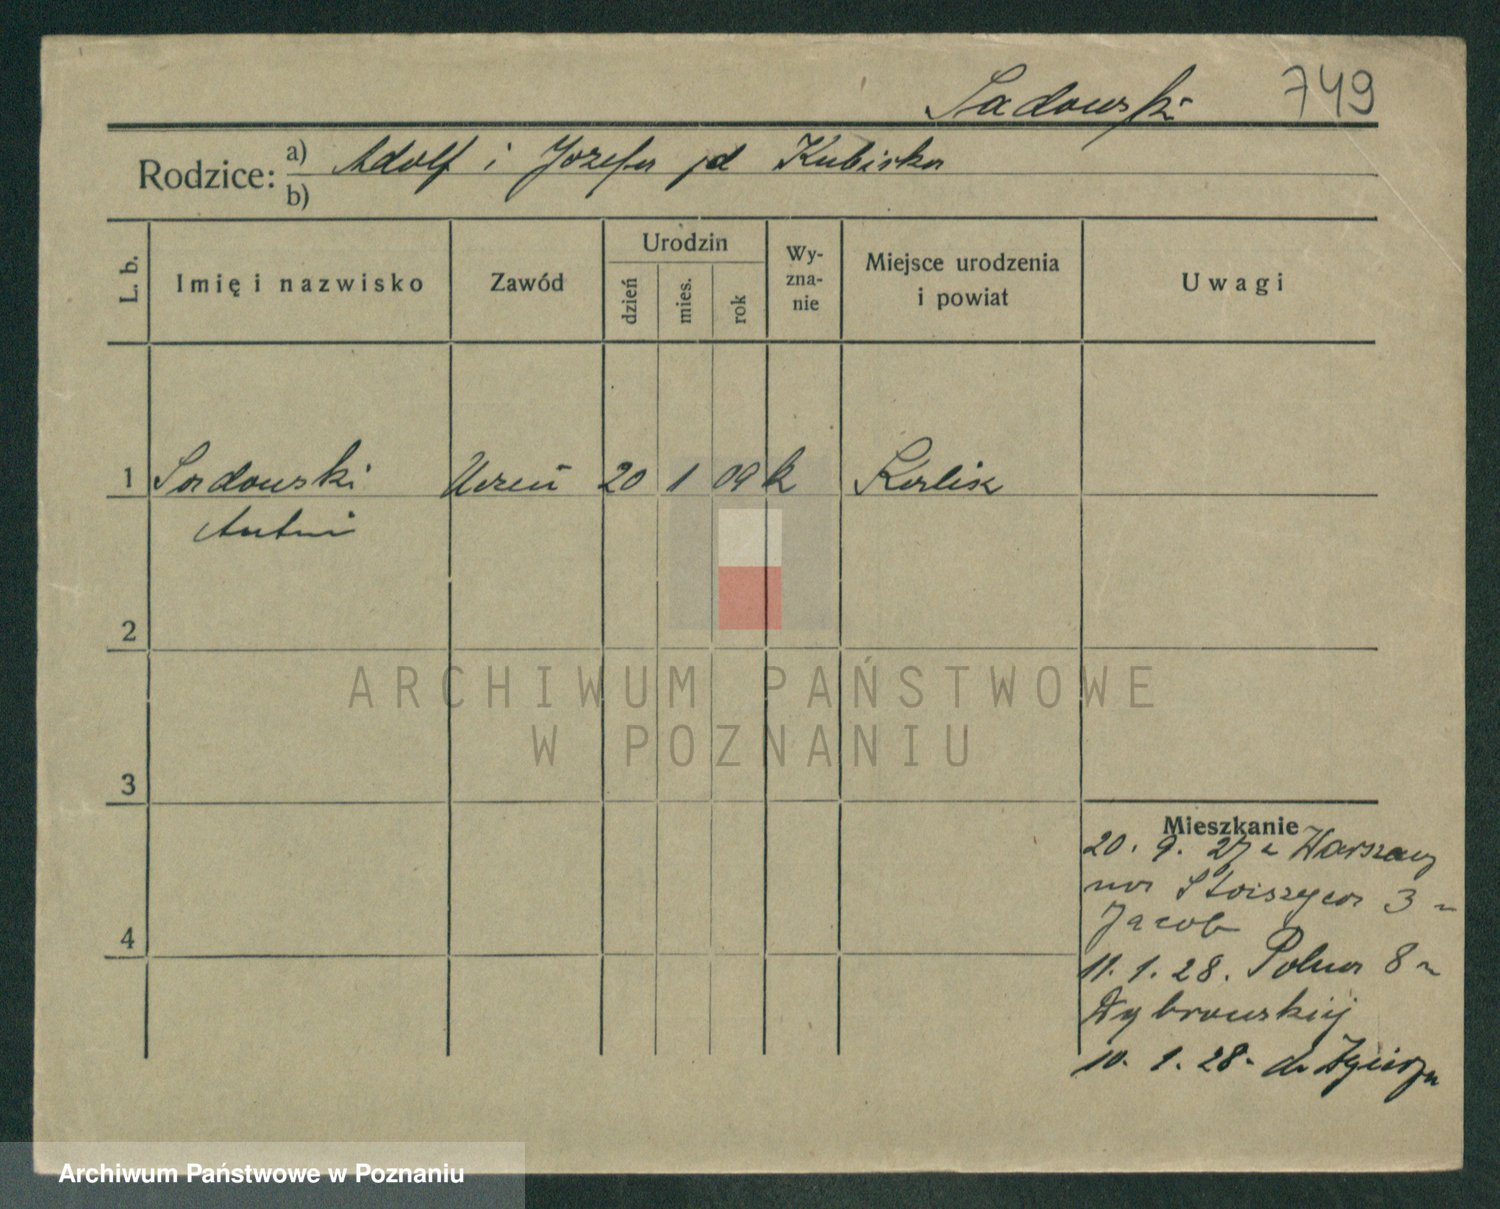 Sadowski 749
Rodzice: a) Adolf i Józefa z d Kubicka
b)
L. b. Imię i nazwisko Zawód Urodzin dzień mies. rok Wy-
zna-
nie Miejsce urodzenia
i powiat Uwagi
1 Sadowski Uczeń 20 1 09 k Kalisz
Antoni
2
ARCHIWUM PAŃSTWOWE
W POZNANIU
3
Mieszkanie
20. 9. 27 z Warszawy
3
Jacob
4
11. 1. 28. Polna 8
10. 1. 28.
Archiwum Państwowe w Poznaniu